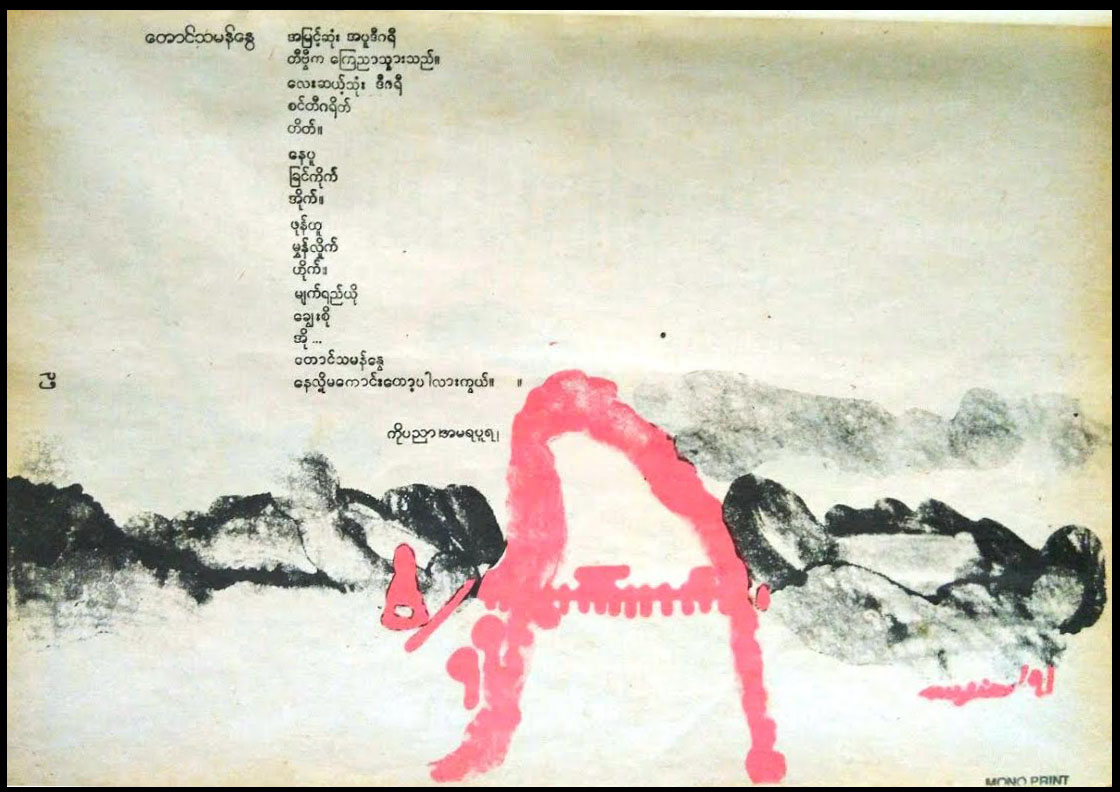 တောင်သမန်နွေ
အမြင့်ဆုံး အပူဒီဂရီ
တီဗွီက ကြေညာသွားသည်။
လေးဆယ့်သုံး ဒီဂရီ
စင်တီဂရိတ်
ဟိတ်။
နေပူ
ခြင်ကိုက်
အိုက်။
ဖုန်ယူ
မွှန်လှိုက်
ဟိုက်။
မျက်ရည်ယို
ချွေးစို
အို ...
တောင်သမန်နွေ
နေလို့မကောင်းတော့ပါလားကွယ်။ ။
ကိုပညာ၊အမရပူရ၊
MONO PRINT